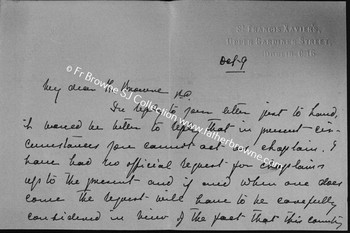 St FRANCIS XAVIER'S,
UPPER GARDINER STREET,
DUBLIN.
Oct. 9
My dear Fr Browne P.C.
In reply to your letter just to hand,
it would be better to reply that in present cir-
cumstances you cannot act as chaplain. I
have had no official request for chaplains
up to the present and if and when one does
come the request will have to be carefully
considered in view of the fact that this country
© Fr Browne SJ Collection
www.fatherbrowne.com